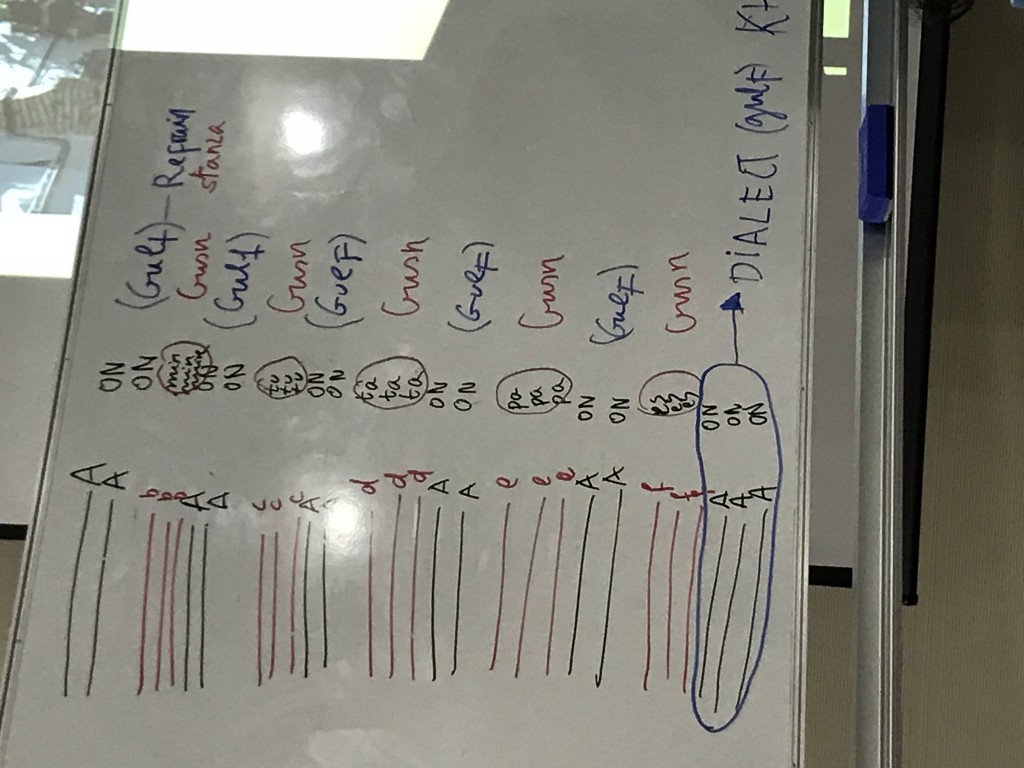 A ON (Gulf) — Refrain
A ON
b min Gusn stanza
b min
b min
A ON (Gulf)
A ON
c tu Gusn
c tu
c tu
A ON (Gulf)
ON
d ta Gusn
d ta
d ta
A ON (Gulf)
A ON
e pa Gusn
e pa
e pa
A ON (Gulf)
A ON
f ez Gusn
f ez
f ez
A ON
A ON → DIALECT (gulf) KH
A ON